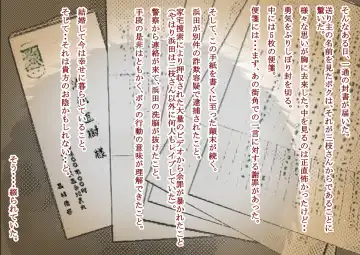 そんなある日、一通の封書が届いた。
送り主の名前を見たボクは、それが三枝さんからであることに
驚いた。
様々な思いが胸に去来した。中を見るのは正直怖かったけど…
勇気をふりしぼり封を切る。
中には5枚の便箋。
便箋には…まず、あの街角での一言に対する謝罪があった。
そして、この手紙を書くに至った顛末が続く。
浜田が別件の詐欺容疑で逮捕されたこと。
家宅捜索により押収された大量のビデオから余罪が暴かれたこと
(やはり浜田は三枝さん以外に何人もレイプしていた)
警察から連絡が来て浜田の洗脳が抜けたこと。
手段の是非はともかく、ボクの行動の意味が理解できたこと。
結婚して今は幸せに暮らしていること。
そして…それは貴方のお陰かもしれない…と。
そう…綴られていた。
樹 様